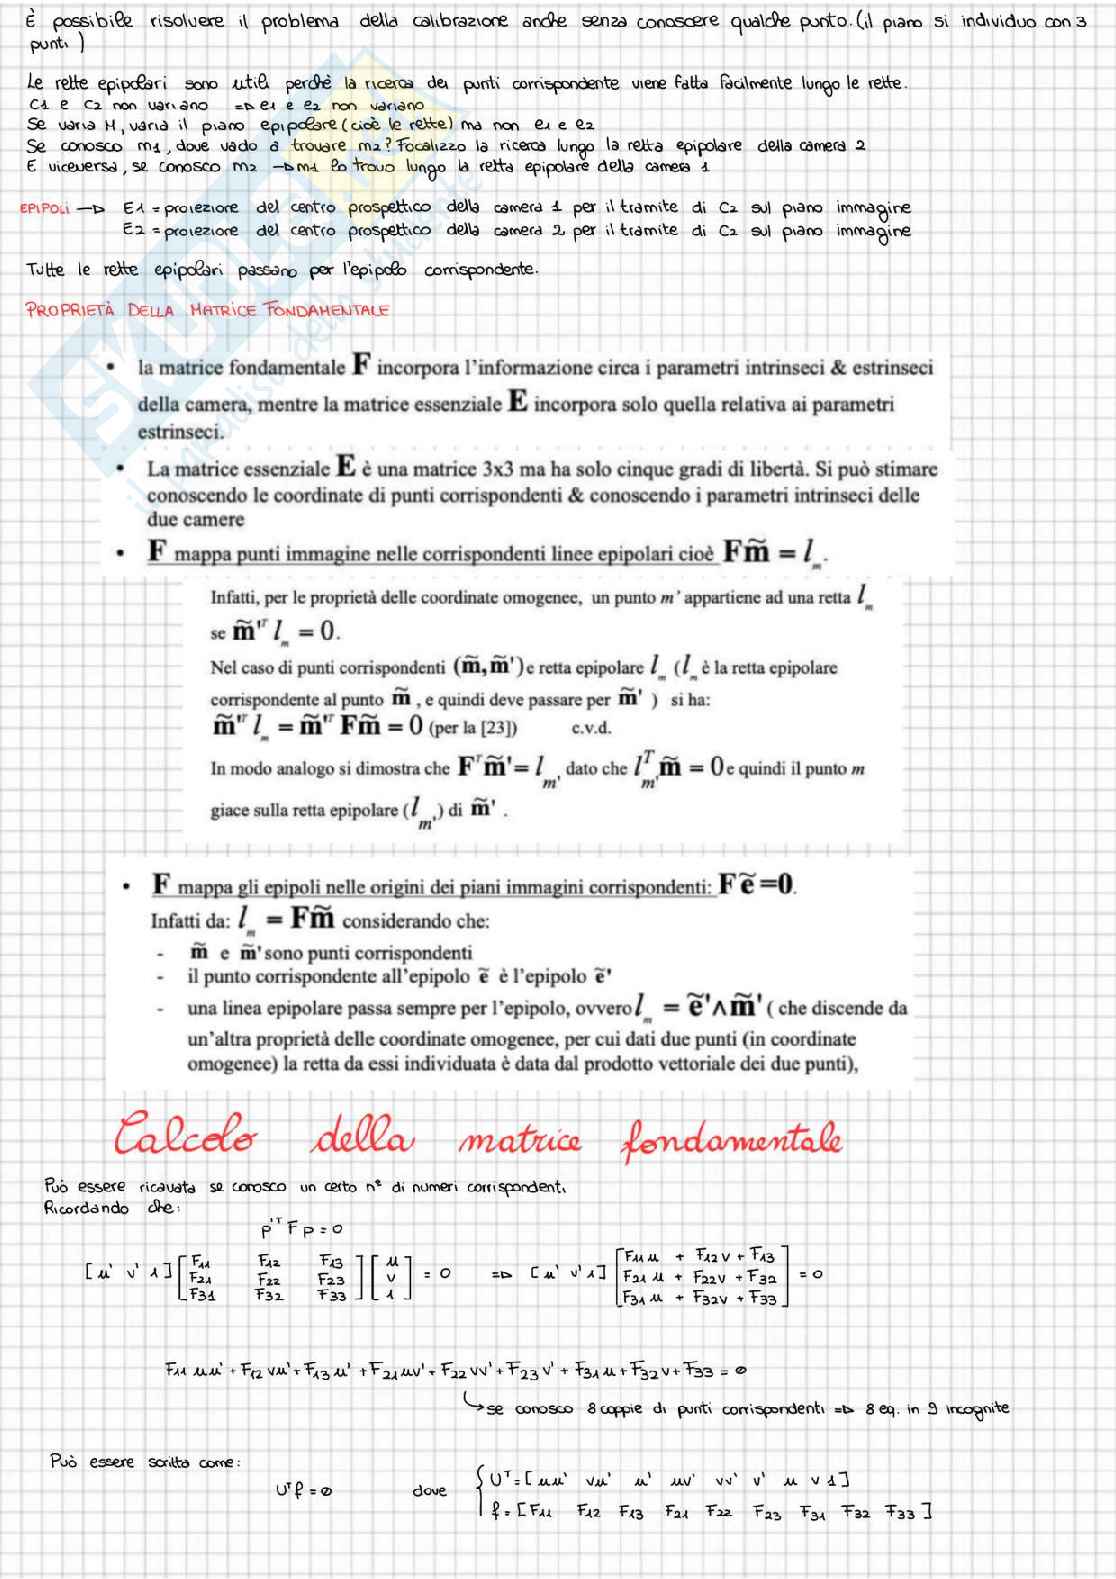 È possibile risolvere il problema della calibrazione anche senza conoscere qualche punto. (il piano si individuo con 3
punti)
Le rette epipolari sono utili perchè la ricerca dei punti corrispondente viene fatta facilmente lungo le rette.
C1 e C2 non variano => e1 e e2 non variano
Se varia M, varia il piano epipolare (cioè le rette) ma non e1 e e2
Se conosco m1, dove vado a trovare m2? Focalizzo la ricerca lungo la retta epipolare della camera 2
E viceversa, se conosco m2 -> m1 lo trovo lungo la retta epipolare della camera 1
EPIPOLI -> E1 = proiezione del centro prospettico della camera 1 per il tramite di C2 sul piano immagine
E2 = proiezione del centro prospettico della camera 2 per il tramite di C2 sul piano immagine
Tutte le rette epipolari passano per l'epipolo corrispondente.
PROPRIETÀ DELLA MATRICE FONDAMENTALE
• la matrice fondamentale F incorpora l'informazione circa i parametri intrinseci & estrinseci
della camera, mentre la matrice essenziale E incorpora solo quella relativa ai parametri
estrinseci.
• La matrice essenziale E è una matrice 3x3 ma ha solo cinque gradi di libertà. Si può stimare
conoscendo le coordinate di punti corrispondenti & conoscendo i parametri intrinseci delle
due camere
• F mappa punti immagine nelle corrispondenti linee epipolari cioè Fm̃ = l_m.
Infatti, per le proprietà delle coordinate omogenee, un punto m' appartiene ad una retta l_m
se m̃'ᵀ l_m = 0.
Nel caso di punti corrispondenti (m̃, m̃') e retta epipolare l_m (l_m è la retta epipolare
corrispondente al punto m̃, e quindi deve passare per m̃' ) si ha:
m̃'ᵀ l_m = m̃'ᵀ Fm̃ = 0 (per la [23]) c.v.d.
In modo analogo si dimostra che Fᵀm̃' = l_m' dato che lᵀ_m' m̃ = 0 e quindi il punto m
giace sulla retta epipolare (l_m') di m̃' .
• F mappa gli epipoli nelle origini dei piani immagini corrispondenti: Fẽ=0.
Infatti da: l_m = Fm̃ considerando che:
- m̃ e m̃' sono punti corrispondenti
- il punto corrispondente all'epipolo ẽ è l'epipolo ẽ'
- una linea epipolare passa sempre per l'epipolo, ovvero l_m = ẽ'∧m̃' ( che discende da
un'altra proprietà delle coordinate omogenee, per cui dati due punti (in coordinate
omogenee) la retta da essi individuata è data dal prodotto vettoriale dei due punti),
Calcolo della matrice fondamentale
Può essere ricavata se conosco un certo n° di numeri corrispondenti.
Ricordando che:
p'ᵀ F p = 0
[u' v' 1] [F11 F12 F13; F21 F22 F23; F31 F32 F33] [u; v; 1] = 0 => [u' v' 1] [F11 u + F12 v + F13; F21 u + F22 v + F32; F31 u + F32 v + F33] = 0
F11 uu' + F12 vu' + F13 u' + F21 uv' + F22 vv' + F23 v' + F31 u + F32 v + F33 = 0
↳ se conosco 8 coppie di punti corrispondenti => 8 eq. in 9 incognite
Può essere scritta come:
Uᵀf = 0 dove { Uᵀ = [uu' vu' u' uv' vv' v' u v 1]
f = [F11 F12 F13 F21 F22 F23 F31 F32 F33]